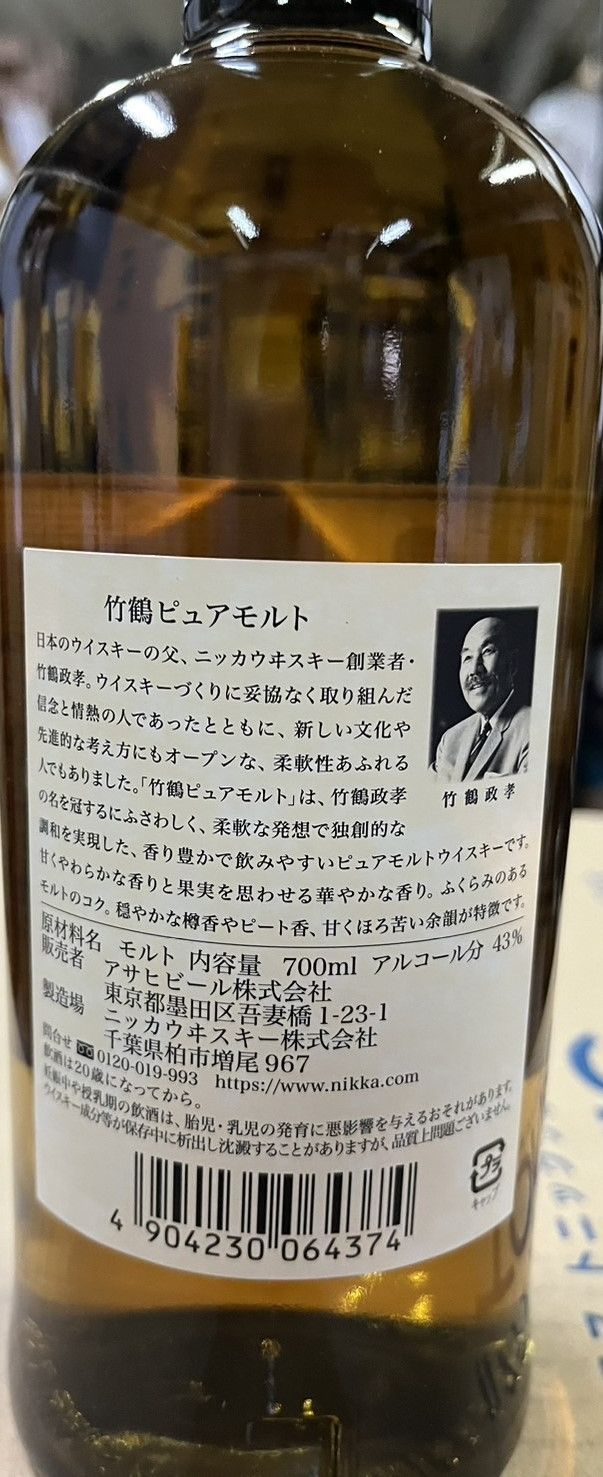 竹鶴ピュアモルト
日本のウイスキーの父、ニッカウヰスキー創業者・
竹鶴政孝。ウイスキーづくりに妥協なく取り組んだ
信念と情熱の人であったとともに、新しい文化や
先進的な考え方にもオープンな、柔軟性あふれる
人でもありました。「竹鶴ピュアモルト」は、竹鶴政孝
の名を冠するにふさわしく、柔軟な発想で独創的な
調和を実現した、香り豊かで飲みやすいピュアモルトウイスキーです。
甘くやわらかな香りと果実を思わせる華やかな香り。ふくらみのある
モルトのコク。穏やかな樽香やピート香、甘くほろ苦い余韻が特徴です。
竹鶴政孝
原材料名 モルト 内容量 700ml アルコール分 43%
販売者 アサヒビール株式会社
東京都墨田区吾妻橋1-23-1
製造場 ニッカウヰスキー株式会社
千葉県柏市増尾967
問合せ 0120-019-993 https://www.nikka.com
飲酒は20歳になってから。
妊娠中や授乳期の飲酒は、胎児・乳児の発育に悪影響を与えるおそれがあります。
ウイスキー成分等が保存中に析出し沈澱することがありますが、品質上問題ございません。
プラ
キャップ
4 904230 064374